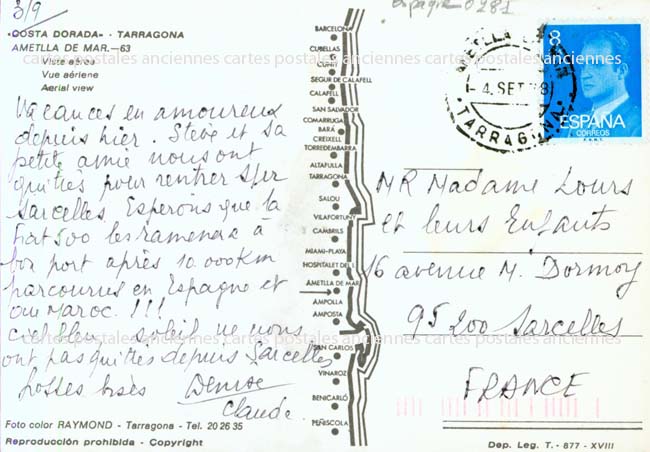 3/9
«COSTA DORADA» - TARRAGONA
AMETLLA DE MAR.—63
Vista aérea
Vue aérienne
Aerial view
Vacances en amoureux
depuis hier. Steve et sa
petite amie nous ont
quittés pour rentrer sur
Sarcelles. Esperons que la
Fiat 500 les ramenera à
bon port après 10.000 Km
parcourus en Espagne et
au Maroc !!!
Ciel bleu soleil ne nous
ont pas quittés depuis Sarcelles
Grosses bises Denise
Claude
Foto color RAYMOND - Tarragona - Tel. 20 26 35
Reproducción prohibida - Copyright
BARCELONA
CUBELLAS
CUNIT
SEGUR DE CALAFELL
CALAFELL
SAN SALVADOR
COMARRUGA
BARÁ
CREIXELL
TORREDEMBARRA
ALTAFULLA
TARRAGONA
SALOU
VILAFORTUNY
CAMBRILS
MIAMI-PLAYA
HOSPITALET DEL I.
AMETLLA DE MAR
AMPOLLA
AMPOSTA
SAN CARLOS
VINAROZ
BENICARLÓ
PEÑISCOLA
Espagne 0281
4 SET
TARRAGONA
8
ESPAÑA
CORREOS
F.N.M.T.
MR Madame Lours
et leurs Enfants
16 avenue M. Dormoy
95200 Sarcelles
FRANCE
Dep. Leg. T. - 877 - XVIII
cartes postales anciennes cartes postales anciennes cartes postales anciennes
cartes postales anciennes cartes postales anciennes cartes postales anciennes